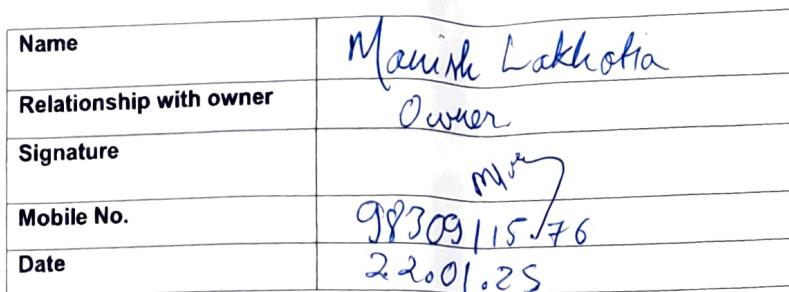 Name Manish Lakhotia
Relationship with owner Owner
Signature
Mobile No. 9830911576
Date 22.01.25